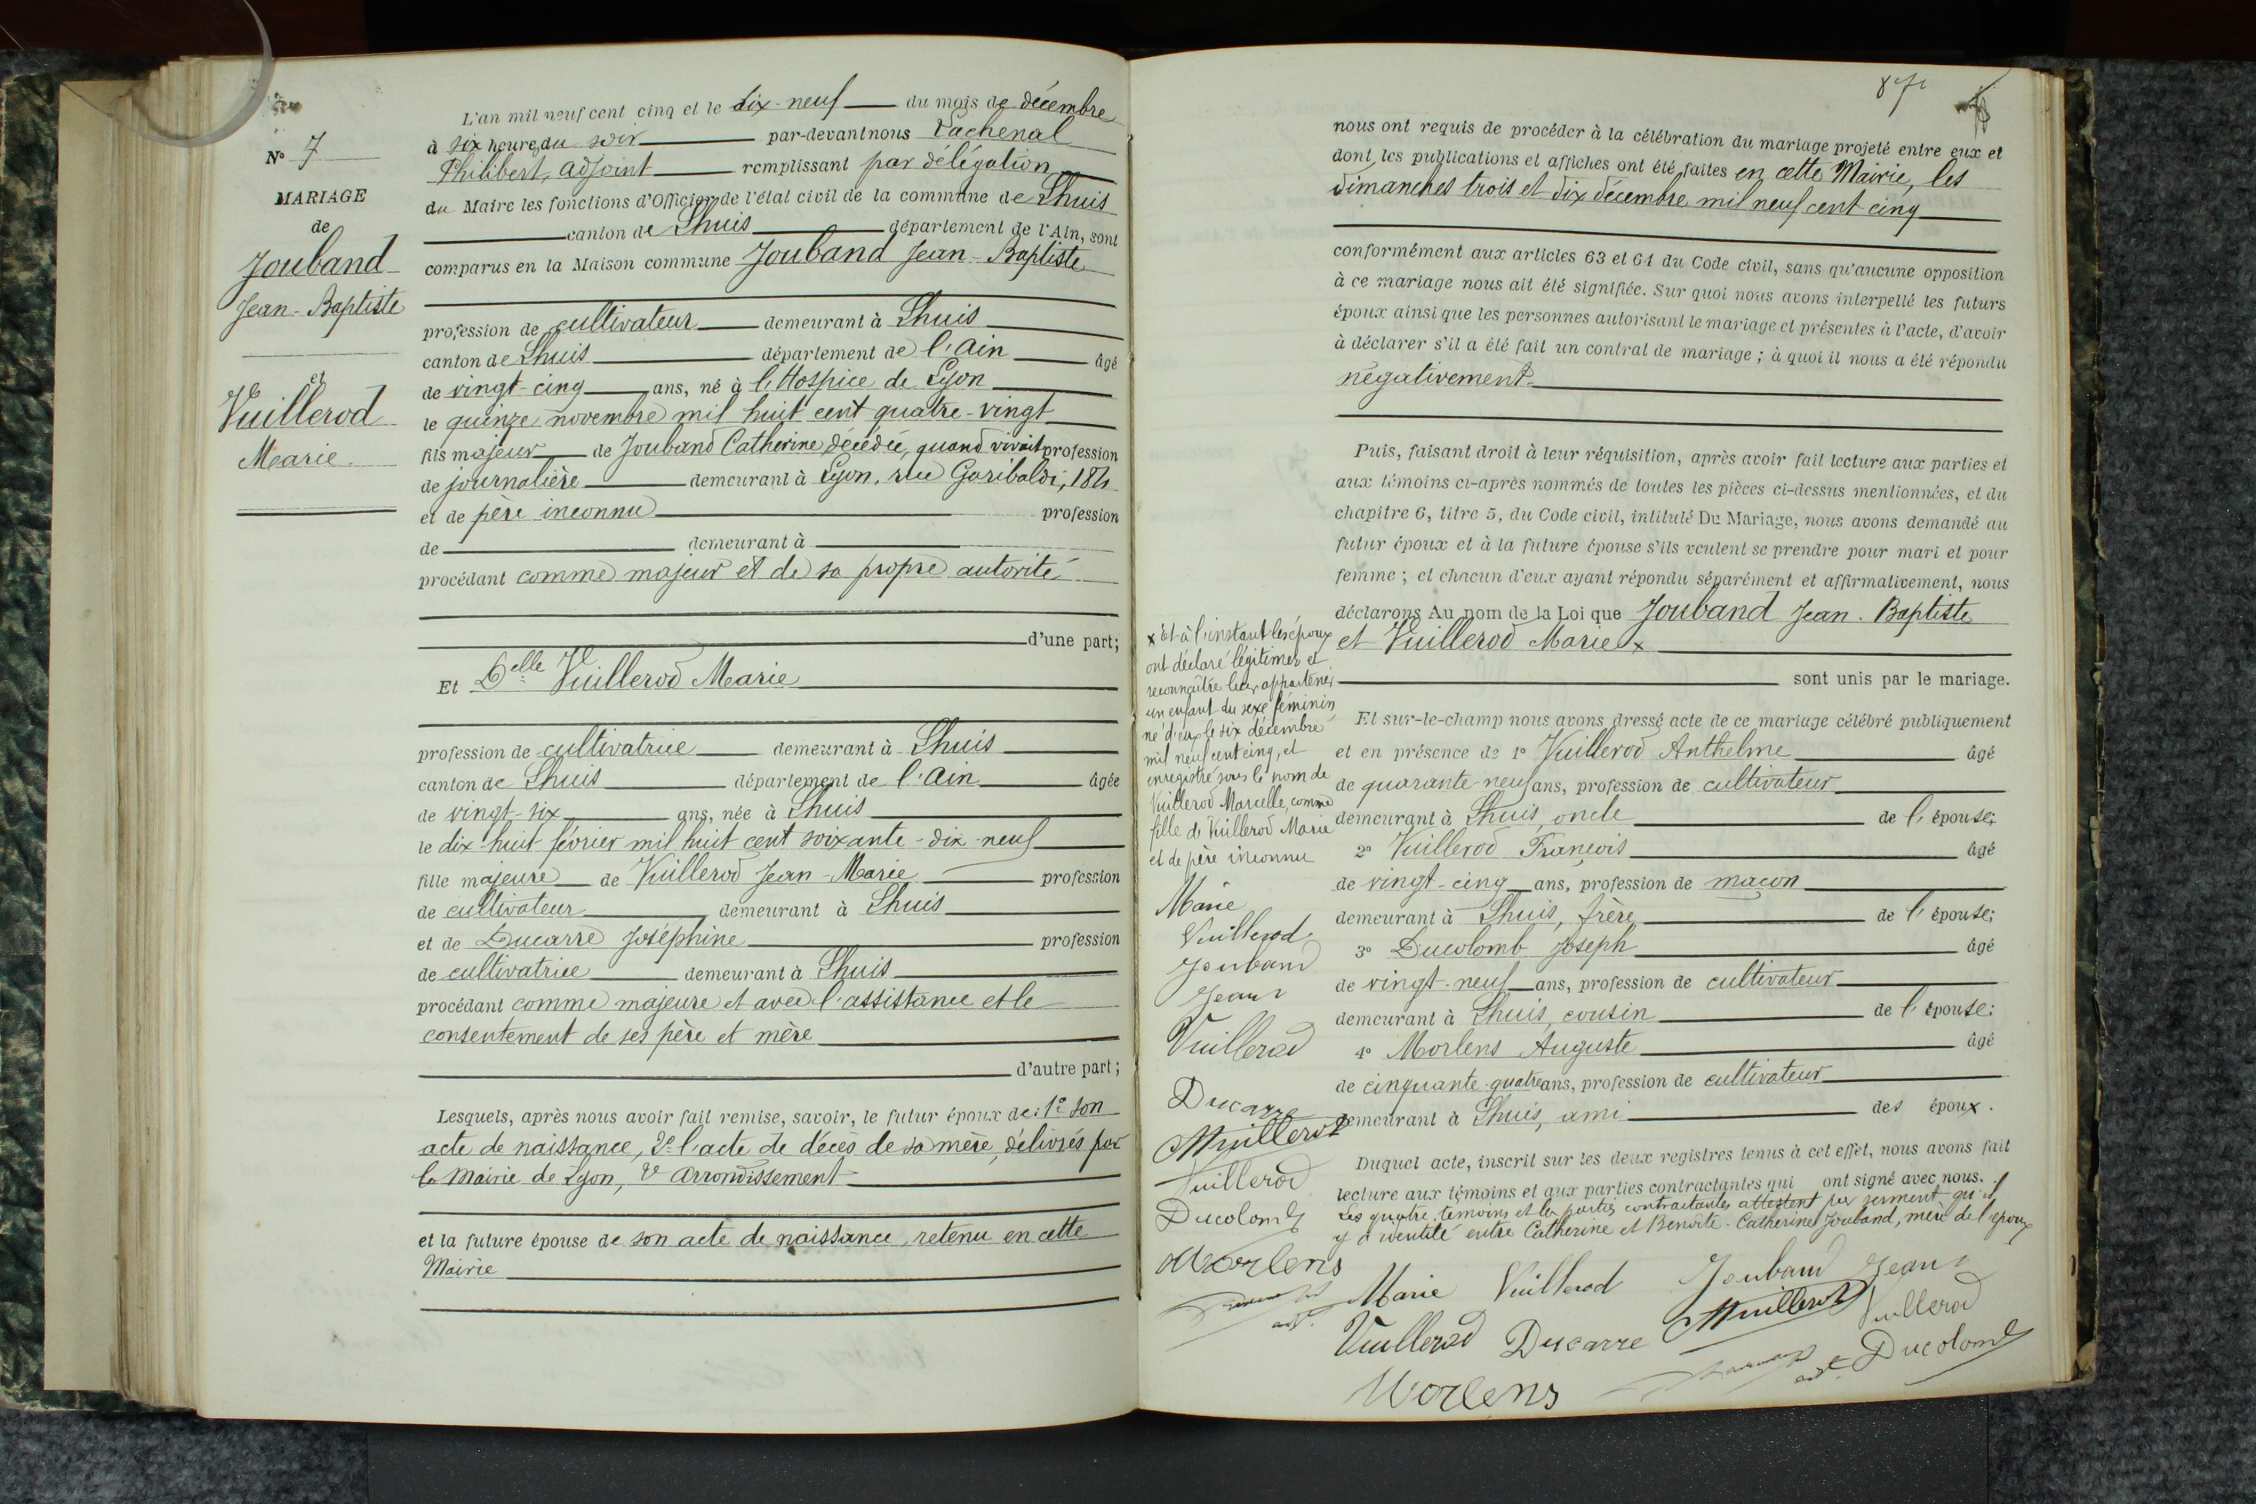 L'an mil neuf cent cinq et le dix-neuf du mois de décembre
à six heures du soir par-devant nous Pachenal
Philibert, adjoint remplissant par délégation
du Maire les fonctions d'Officier de l'état civil de la commune de Lhuis
canton de Lhuis département de l'Ain, sont
comparus en la Maison commune Jouband Jean-Baptiste
profession de cultivateur demeurant à Lhuis
canton de Lhuis département de l'Ain âgé
de vingt-cinq ans, né à l'Hospice de Lyon
le quinze novembre mil huit cent quatre-vingt
fils majeur de Jouband Catherine décédée, quand vivait profession
de journalière demeurant à Lyon, rue Garibaldi,
et de père inconnu profession
de demeurant à
procédant comme majeur et de sa propre autorité
d'une part;
Et Delle Vuillerod Marie
profession de cultivatrice demeurant à Lhuis
canton de Lhuis département de l'Ain âgée
de vingt-six ans, née à Lhuis
le dix-huit février mil huit cent soixante-dix-neuf
fille majeure de Vuillerod Jean-Marie profession
de cultivateur demeurant à Lhuis
et de Ducarre Joséphine profession
de cultivatrice demeurant à Lhuis
procédant comme majeure et avec l'assistance et le
consentement de ses père et mère
d'autre part;
Lesquels, après nous avoir fait remise, savoir, le futur époux de: 1º son
acte de naissance, 2º l'acte de décès de sa mère, délivrés par
la Mairie de Lyon, Vº arrondissement
et la future épouse de son acte de naissance, retenu en cette
Mairie
Nº 7
MARIAGE
de
Jouband
Jean-Baptiste
et
Vuillerod
Marie
nous ont requis de procéder à la célébration du mariage projeté entre eux et
dont les publications et affiches ont été faites en cette Mairie, les
dimanches trois et dix décembre mil neuf cent cinq
conformément aux articles 63 et 64 du Code civil, sans qu'aucune opposition
à ce mariage nous ait été signifiée. Sur quoi nous avons interpellé les futurs
époux ainsi que les personnes autorisant le mariage et présentes à l'acte, d'avoir
à déclarer s'il a été fait un contrat de mariage; à quoi il nous a été répondu
négativement.
Puis, faisant droit à leur réquisition, après avoir fait lecture aux parties et
aux témoins ci-après nommés de toutes les pièces ci-dessus mentionnées, et du
chapitre 6, titre 5, du Code civil, intitulé Du Mariage, nous avons demandé au
futur époux et à la future épouse s'ils veulent se prendre pour mari et pour
femme; et chacun d'eux ayant répondu séparément et affirmativement, nous
déclarons Au nom de la Loi que Jouband Jean-Baptiste
et Vuillerod Marie x
sont unis par le mariage.
Et sur-le-champ nous avons dressé acte de ce mariage célébré publiquement
et en présence de 1º Vuillerod Anthelme âgé
de quarante-neuf ans, profession de cultivateur
demeurant à Lhuis, oncle de l'épouse;
2º Vuillerod François âgé
de vingt-cinq ans, profession de maçon
demeurant à Lhuis, frère de l'épouse;
3º Ducolomb Joseph âgé
de vingt-neuf ans, profession de cultivateur
demeurant à Lhuis, cousin de l'épouse;
4º Morlens Auguste âgé
de cinquante-quatre ans, profession de cultivateur
demeurant à Lhuis, ami des époux.
Duquel acte, inscrit sur les deux registres tenus à cet effet, nous avons fait
lecture aux témoins et aux parties contractantes qui ont signé avec nous.
Les quatre témoins et les parties contractantes attestent par serment qu'il
y a identité entre Catherine et Benoîte-Catherine Jouband, mère de l'époux
Marie Vuillerod Jouband Jean
Vuillerod Ducarre Vuillerod Vuillerod
Ducolomb
Morlens
x Et à l'instant les époux
ont déclaré légitimer et
reconnaître leur appartenir
un enfant du sexe féminin
né d'eux le six décembre
mil neuf cent cinq, et
enregistré sous le nom de
Vuillerod Marcelle, comme
fille de Vuillerod Marie
et de père inconnu
Marie
Vuillerod
Jouband
Jean
Vuillerod
Ducarre
Vuillerod
Vuillerod
Ducolomb
Morlens